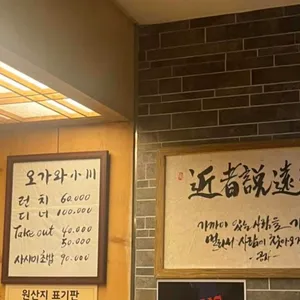 오가와 小川
런치 60,000
디너 100,000
Take out 40,000
50,000
사시미초밥 90,000
원산지 표기판
近者說遠
가까이 있는 사람을 기
멀리서 사람이 찾아오